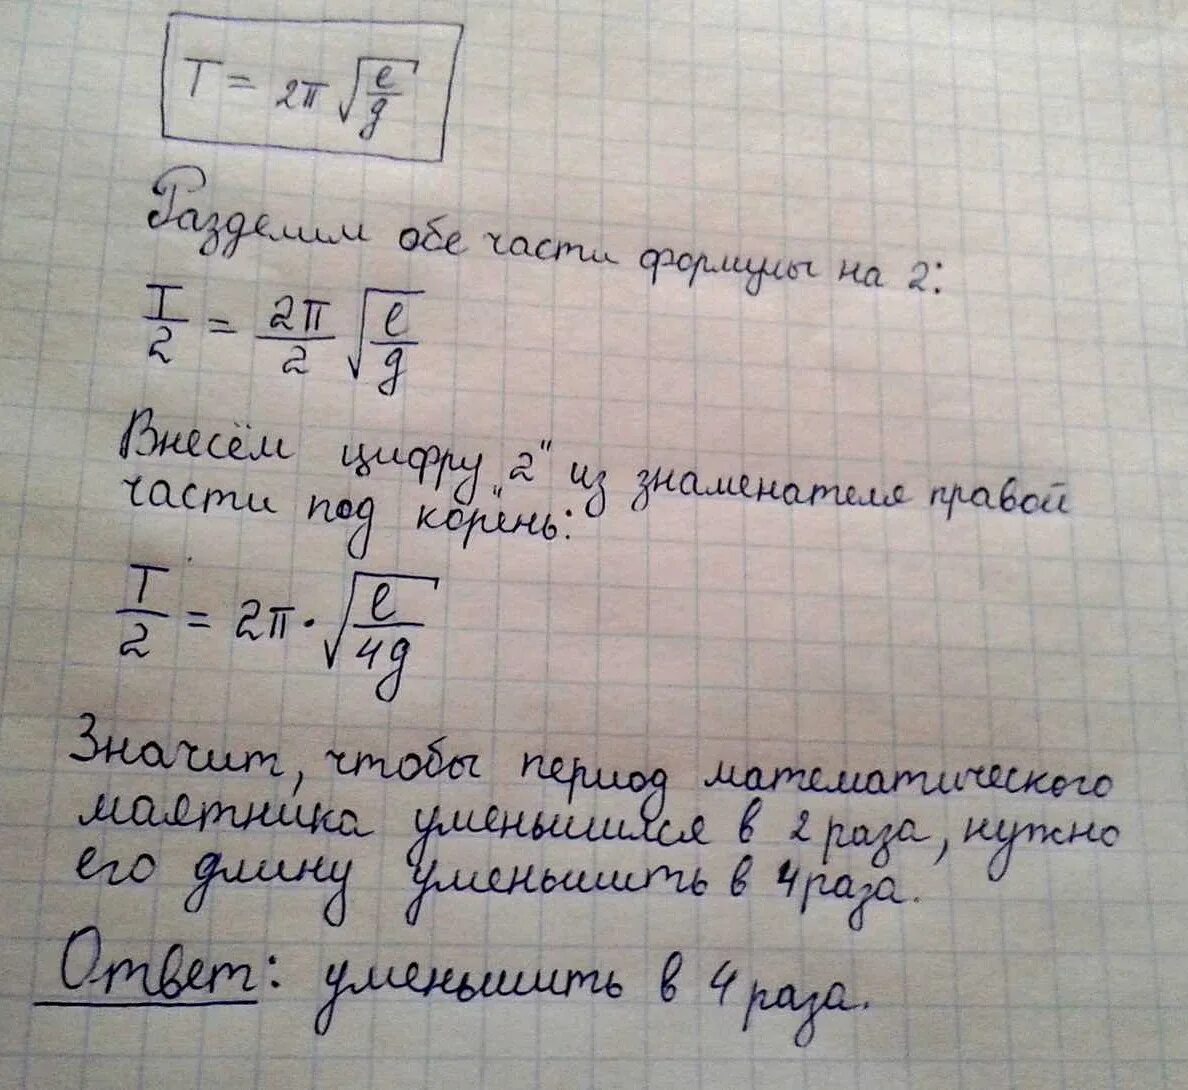 T = 2π√(ℓ/g)
Разделим обе части формулы на 2:
T/2 = 2π/2 √(ℓ/g)
Внесём цифру „2" из знаменателя правой
части под корень:
T/2 = 2π · √(ℓ/4g)
Значит, чтобы период математического
маятника уменьшился в 2 раза, нужно
его длину уменьшить в 4 раза.
Ответ: уменьшить в 4 раза.